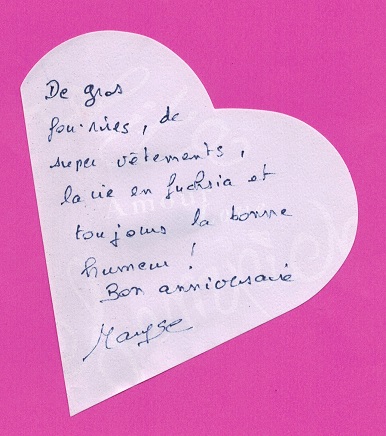 De gros
fou-rires, de
super vêtements,
la vie en fuchsia et
toujours la bonne
humeur !
Bon anniversaire
Maryse